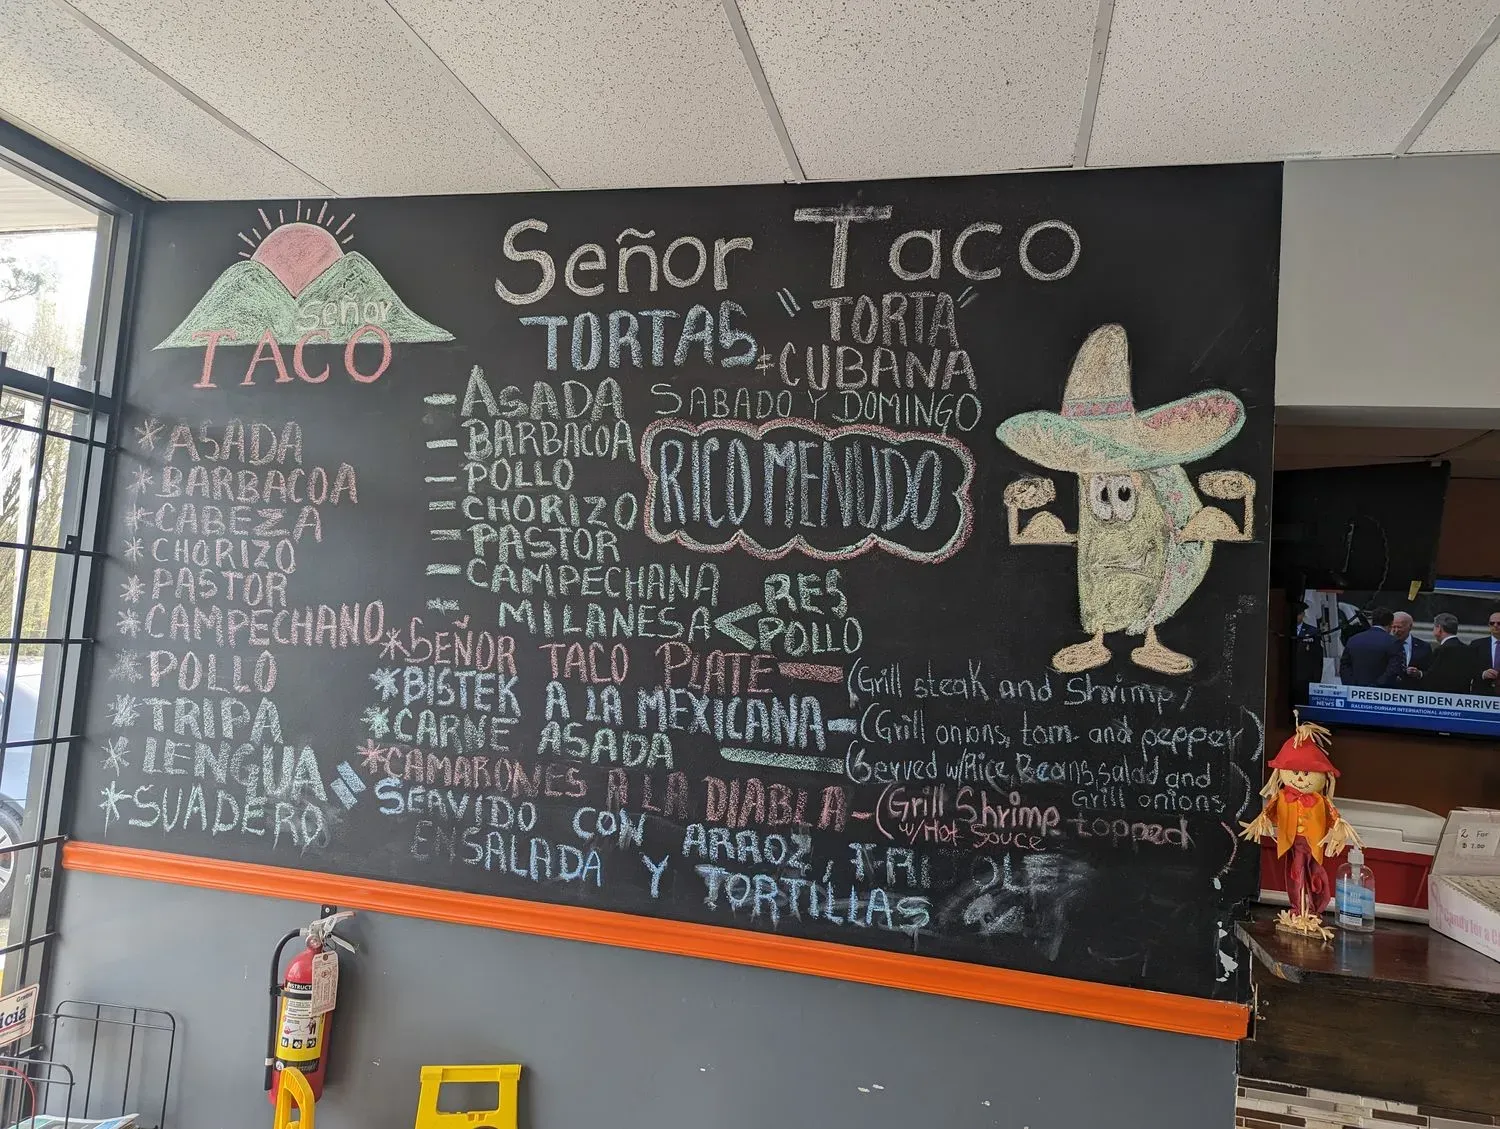 Señor Taco
Señor
TACO
* ASADA
* BARBACOA
* CABEZA
* CHORIZO
* PASTOR
* CAMPECHANO
* POLLO
* TRIPA
* LENGUA
* SUADERO
TORTAS
- ASADA
- BARBACOA
- POLLO
- CHORIZO
- PASTOR
- CAMPECHANA
- MILANESA < RES
POLLO
"TORTA"
CUBANA
SABADO Y DOMINGO
RICO MENUDO
* SEÑOR TACO PLATE — (Grill steak and Shrimp)
* BISTEK A LA MEXICANA — (Grill onions, tom. and pepper)
* CARNE ASADA — (Served w/Rice, Beans, salad and
Grill onions)
* CAMARONES A LA DIABLA - (Grill Shrimp topped
w/Hot Sauce)
" SERVIDO CON ARROZ,
ENSALADA Y TORTILLAS
PRESIDENT BIDEN ARRIVE
RALEIGH-DURHAM INTERNATIONAL AIRPORT
NEWS 1
2 For